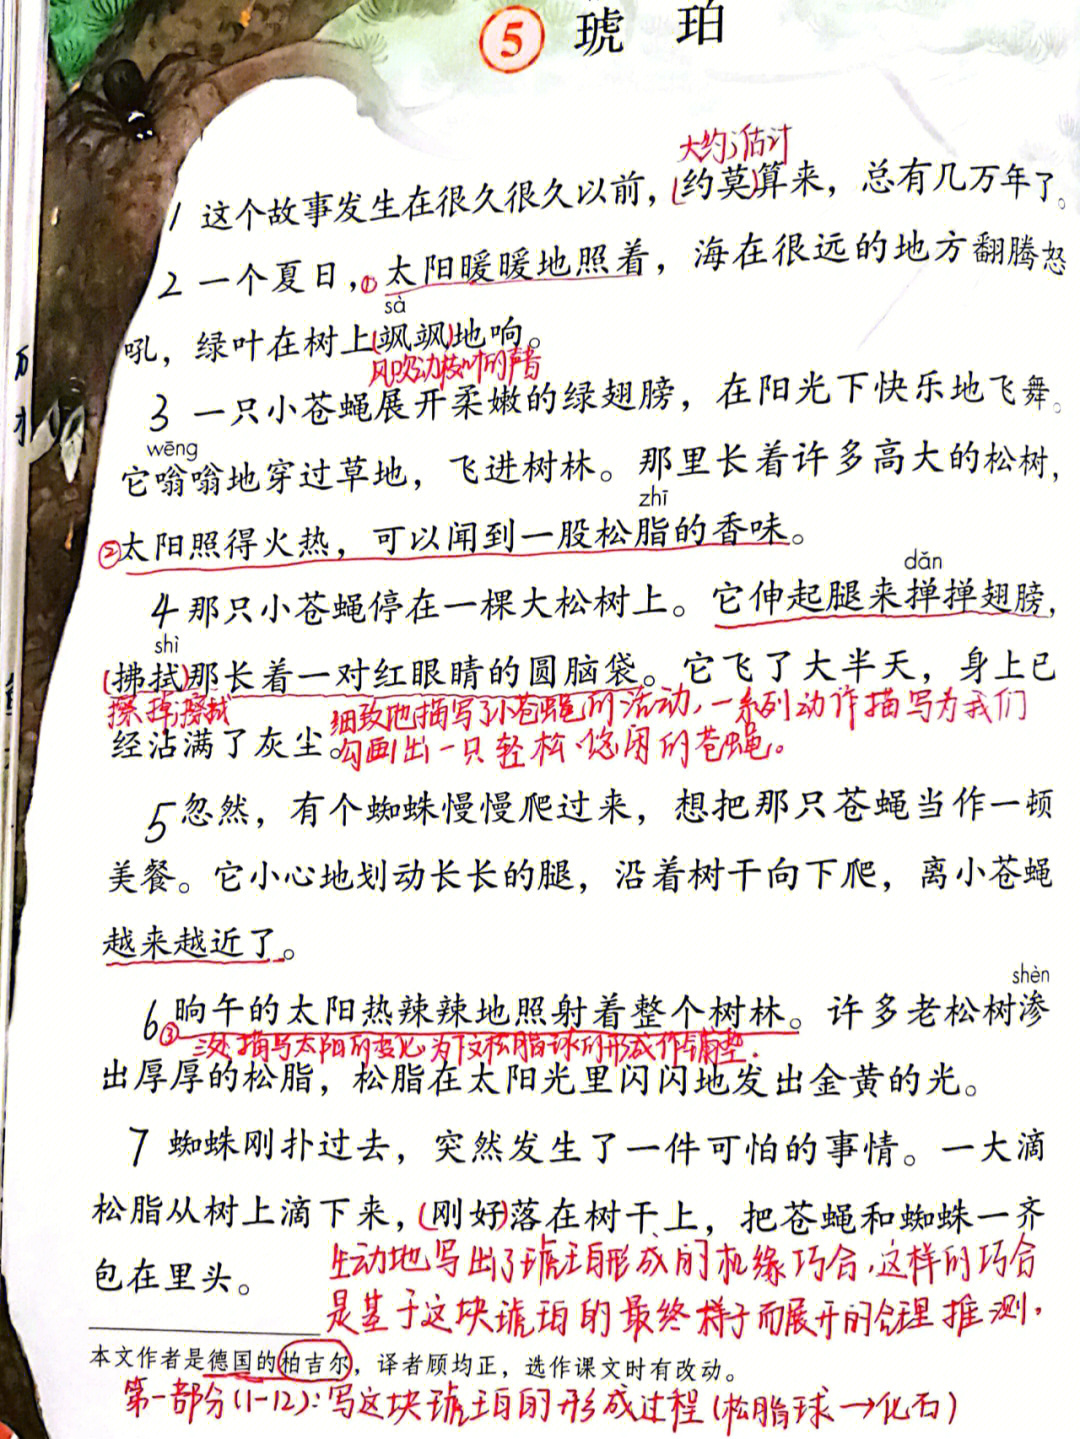 5 琥珀
大约;估计
1 这个故事发生在很久很久以前,(约莫)算来,总有几万年了。
2 一个夏日,①太阳暖暖地照着,海在很远的地方翻腾怒
sà
吼,绿叶在树上(飒飒)地响。
风吹动枝叶的声音
3 一只小苍蝇展开柔嫩的绿翅膀,在阳光下快乐地飞舞。
wēng
它嗡嗡地穿过草地,飞进树林。那里长着许多高大的松树,
zhī
②太阳照得火热,可以闻到一股松脂的香味。
dǎn
4 那只小苍蝇停在一棵大松树上。它伸起腿来掸掸翅膀,
shì
(拂拭)那长着一对红眼睛的圆脑袋。它飞了大半天,身上已
擦掉;擦拭 细致地描写了小苍蝇的活动,一系列动作描写为我们
经沾满了灰尘。勾画出一只轻松、悠闲的苍蝇。
5 忽然,有个蜘蛛慢慢爬过来,想把那只苍蝇当作一顿
美餐。它小心地划动长长的腿,沿着树干向下爬,离小苍蝇
越来越近了。
shèn
6 ③晌午的太阳热辣辣地照射着整个树林。许多老松树渗
三处描写太阳的变化为下文松脂球的形成作铺垫.
出厚厚的松脂,松脂在太阳光里闪闪地发出金黄的光。
7 蜘蛛刚扑过去,突然发生了一件可怕的事情。一大滴
松脂从树上滴下来,(刚好)落在树干上,把苍蝇和蜘蛛一齐
包在里头。
生动地写出了琥珀形成的机缘巧合,这样的巧合
是基于这块琥珀的最终样子而展开的合理推测,
本文作者是德国的柏吉尔,译者顾均正,选作课文时有改动。
第一部分(1-12):写这块琥珀的形成过程(松脂球→化石)